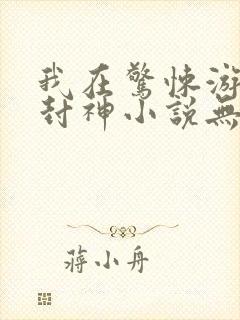 我在驚悚游
封神小說無
蔣小舟